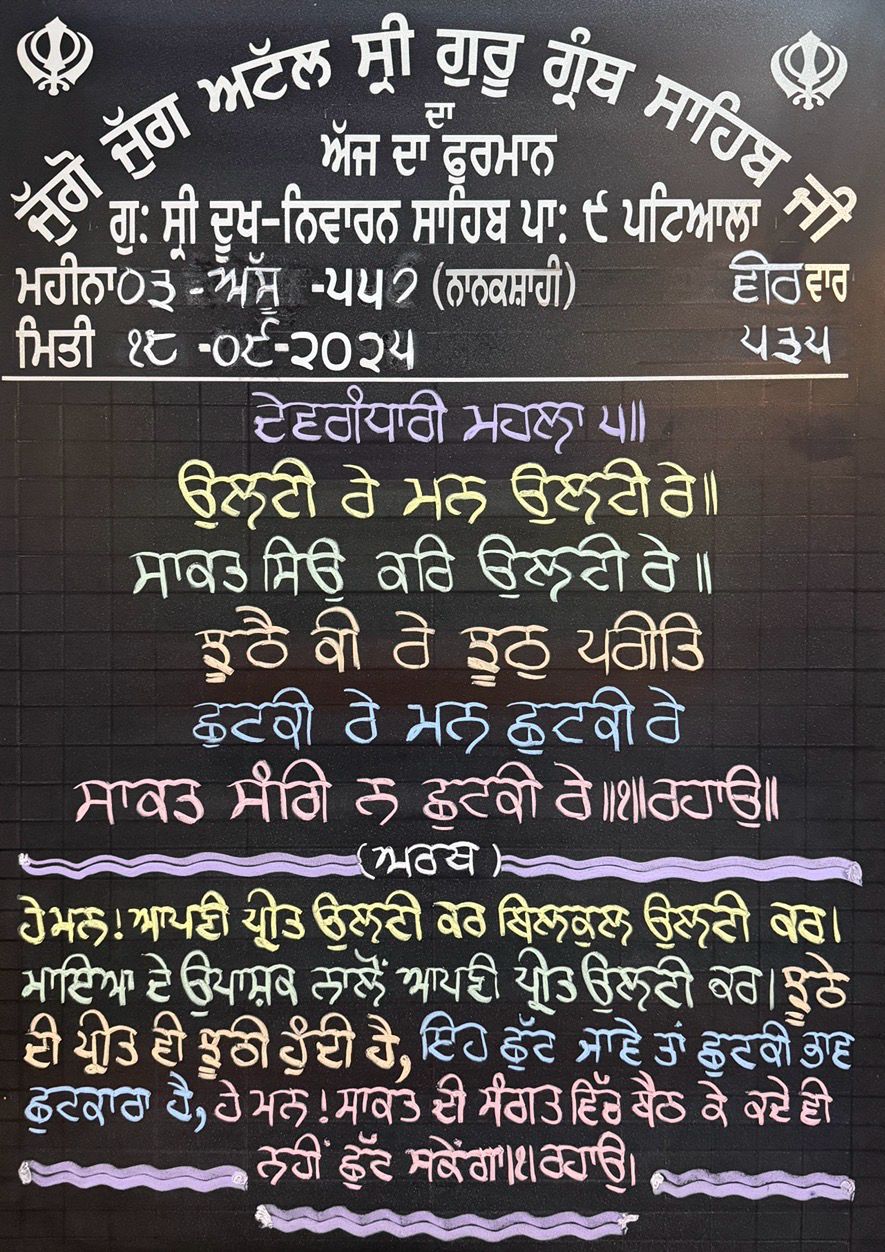 ਜੁੱਗੋ ਜੁੱਗ ਅਟੱਲ ਸ੍ਰੀ ਗੁਰੂ ਗ੍ਰੰਥ ਸਾਹਿਬ ਜੀ
ਦਾ
ਅੱਜ ਦਾ ਫੁਰਮਾਨ
ਗੁ: ਸ੍ਰੀ ਦੂਖ-ਨਿਵਾਰਨ ਸਾਹਿਬ ਪਾ: ੯ ਪਟਿਆਲਾ
ਮਹੀਨਾ ੦੩ - ਅੱਸੂ -੫੫੭ (ਨਾਨਕਸ਼ਾਹੀ) ਵੀਰਵਾਰ
ਮਿਤੀ ੧੮ -੦੯-੨੦੨੫ ੫੩੫
ਦੇਵਗੰਧਾਰੀ ਮਹਲਾ ੫॥
ਉਲਟੀ ਰੇ ਮਨ ਉਲਟੀ ਰੇ॥
ਸਾਕਤ ਸਿਉ ਕਰਿ ਉਲਟੀ ਰੇ ॥
ਝੂਠੈ ਕੀ ਰੇ ਝੂਠੁ ਪਰੀਤਿ
ਛੁਟਕੀ ਰੇ ਮਨ ਛੁਟਕੀ ਰੇ
ਸਾਕਤ ਸੰਗਿ ਨ ਛੁਟਕੀ ਰੇ ॥੧॥ਰਹਾਉ॥
(ਅਰਥ)
ਹੇ ਮਨ! ਆਪਣੀ ਪ੍ਰੀਤ ਉਲਟੀ ਕਰ ਬਿਲਕੁਲ ਉਲਟੀ ਕਰ।
ਮਾਇਆ ਦੇ ਉਪਾਸ਼ਕ ਨਾਲੋਂ ਆਪਣੀ ਪ੍ਰੀਤ ਉਲਟੀ ਕਰ। ਝੂਠੇ
ਦੀ ਪ੍ਰੀਤ ਵੀ ਝੂਠੀ ਹੁੰਦੀ ਹੈ, ਇਹ ਛੁੱਟ ਜਾਵੇ ਤਾਂ ਛੁਟਕੀ ਭਾਵ
ਛੁਟਕਾਰਾ ਹੈ, ਹੇ ਮਨ! ਸਾਕਤ ਦੀ ਸੰਗਤ ਵਿੱਚ ਬੈਠ ਕੇ ਕਦੇ ਵੀ
ਨਹੀਂ ਛੁੱਟ ਸਕੇਂਗਾ॥੧॥ਰਹਾਉ।